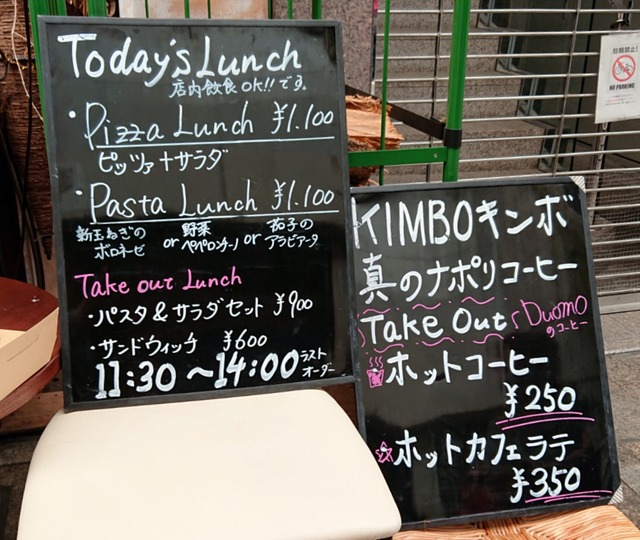 Today's Lunch
店内飲食OK!!です。
・Pizza Lunch ¥1.100
ピッツァ+サラダ
・Pasta Lunch ¥1.100
新玉ねぎのボロネーゼ or 野菜ペペロンチーノ or 茄子のアラビアータ
Take out Lunch
・パスタ&サラダセット ¥900
・サンドウィッチ ¥600
11:30~14:00 ラストオーダー
KIMBOキンボ
真のナポリコーヒー
Take Out Duomoのコーヒー
ホットコーヒー
¥250
ホットカフェラテ
¥350
駐輪禁止!
NO PARKING